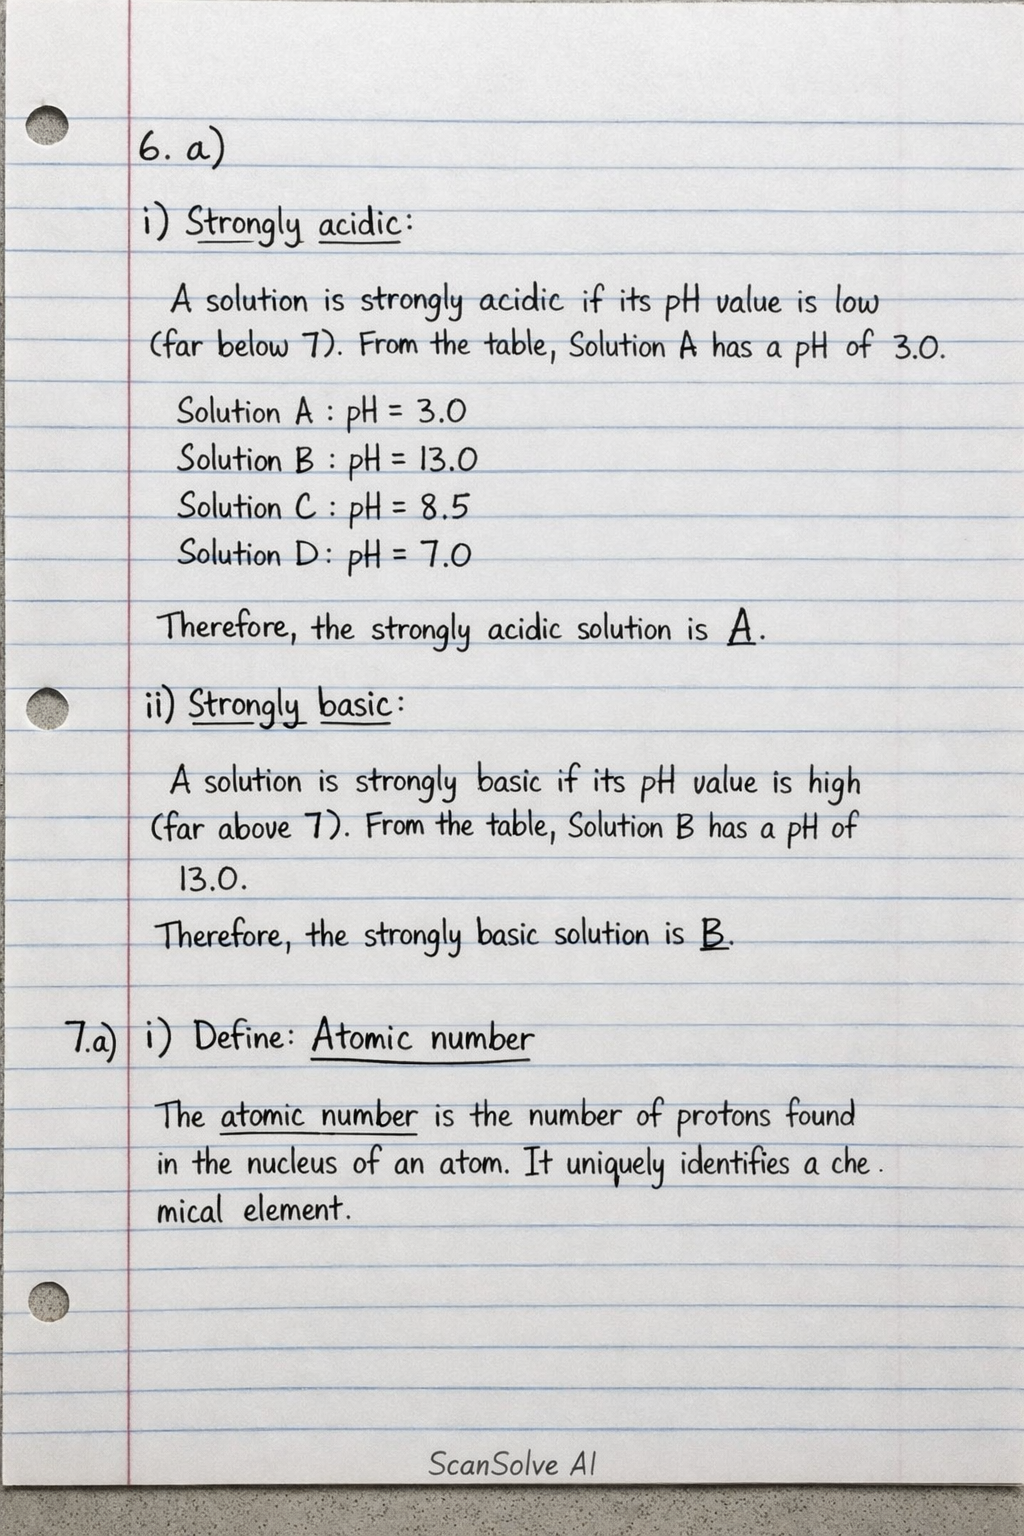 6. a)
i) Strongly acidic:
A solution is strongly acidic if its pH value is low
(far below 7). From the table, Solution A has a pH of 3.0.
Solution A : pH = 3.0
Solution B : pH = 13.0
Solution C : pH = 8.5
Solution D: pH = 7.0
Therefore, the strongly acidic solution is A.
ii) Strongly basic:
A solution is strongly basic if its pH value is high
(far above 7). From the table, Solution B has a pH of
13.0.
Therefore, the strongly basic solution is B.
7.a) i) Define: Atomic number
The atomic number is the number of protons found
in the nucleus of an atom. It uniquely identifies a che.
mical element.
ScanSolve AI